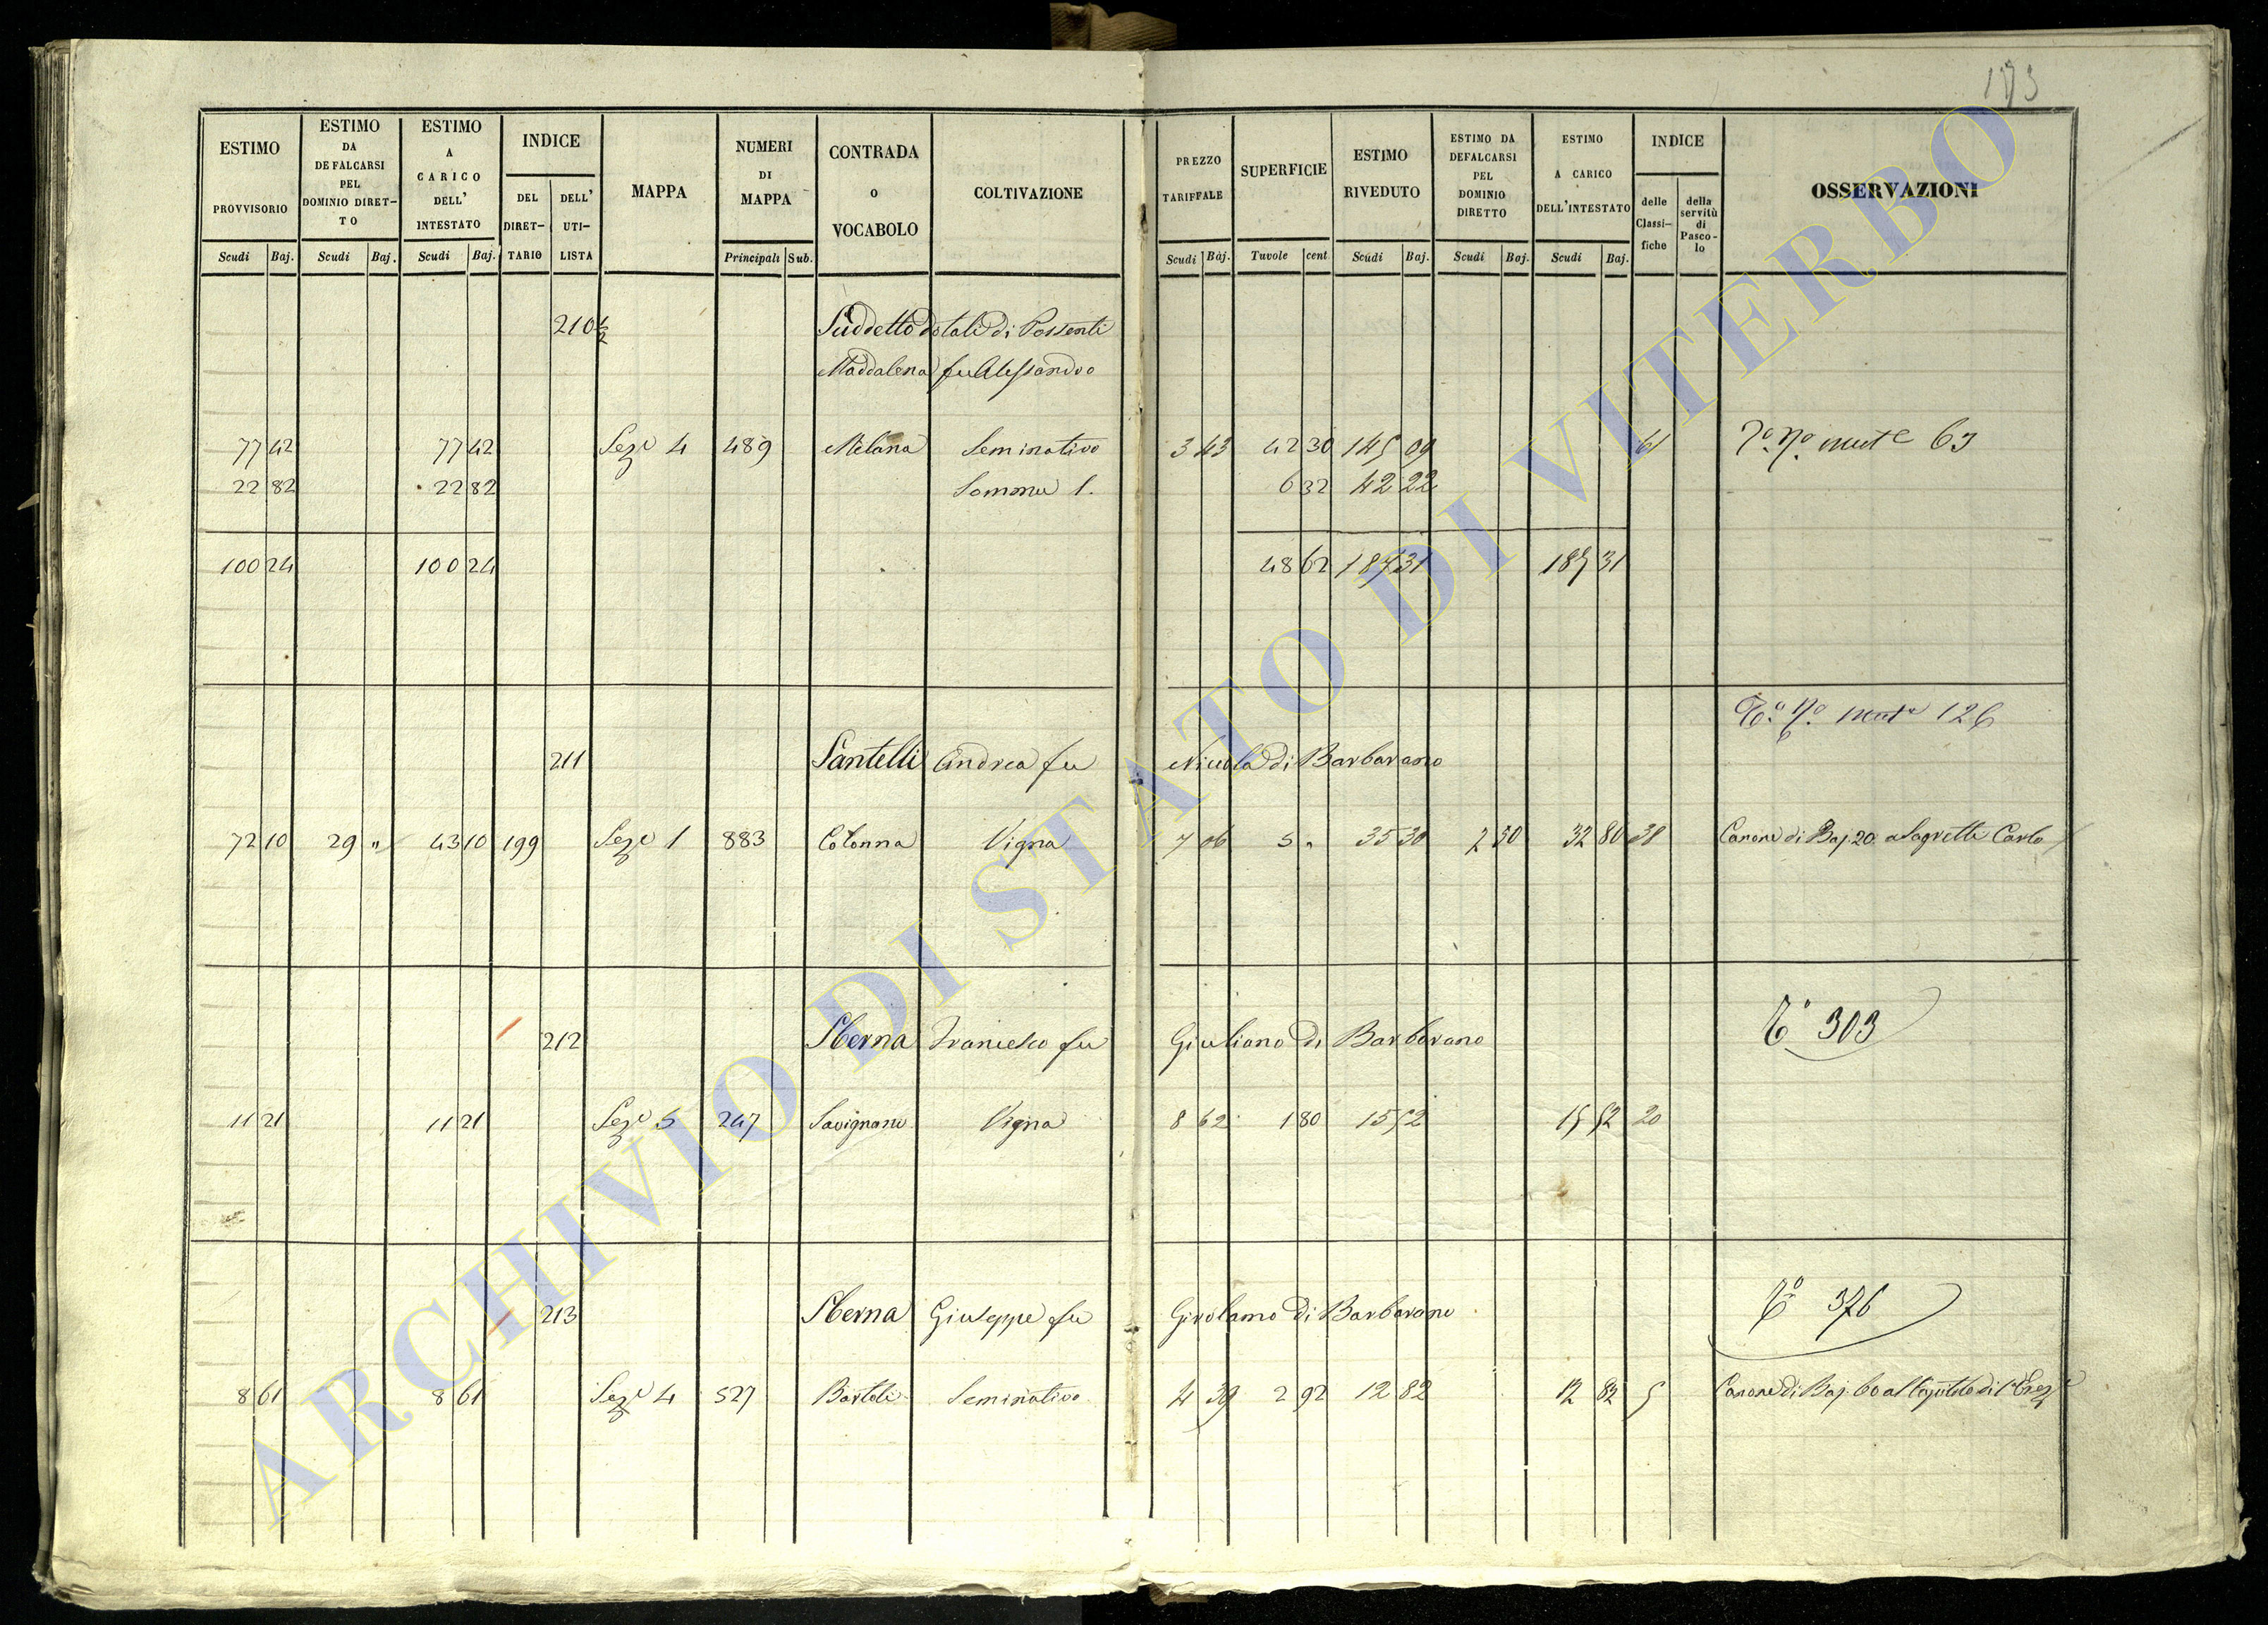 173
ESTIMO PROVVISORIO Scudi Baj.
ESTIMO DA DEFALCARSI PEL DOMINIO DIRETTO Scudi Baj.
ESTIMO A CARICO DELL' INTESTATO Scudi Baj.
INDICE DEL DIRETTARIO DELL' UTILISTA
MAPPA
NUMERI DI MAPPA Principali Sub.
CONTRADA o VOCABOLO
COLTIVAZIONE
PREZZO TARIFFALE Scudi Baj.
SUPERFICIE Tavole cent
ESTIMO RIVEDUTO Scudi Baj.
ESTIMO DA DEFALCARSI PEL DOMINIO DIRETTO Scudi Baj.
ESTIMO A CARICO DELL'INTESTATO Scudi Baj.
INDICE delle Classifiche della servitù di Pascolo
OSSERVAZIONI
210 1/2 Suddetto dotali di Possenti
Maddalena fu Alessandro
77 42 77 42 Sez.e 4 489 Melana Seminativo 3 43 42 30 145 09 61 63
22 82 22 82 6 32 42 22
100 24 100 24 48 62 187 31 187 31
126
211 Santelli Andrea fu Nicola di Barbarano
72 10 29 " 43 10 199 Sez.e 1 883 Colonna Vigna 7 06 5 " 35 30 2 50 32 80 38 Canone di Baj. 20 a Sagretti Carlo
303
212 Sberna Francesco fu Giuliano di Barbarano
11 21 11 21 Sez.e 5 247 Savignano Vigna 8 62 1 80 15 52 15 52 20
376
213 Sberna Giuseppe fu Girolamo di Barbarano
8 61 8 61 Sez.e 4 527 Bartoli Seminativo 4 39 2 92 12 82 12 82 5 Canone di Baj. 60 al
ARCHIVIO DI STATO DI VITERBO